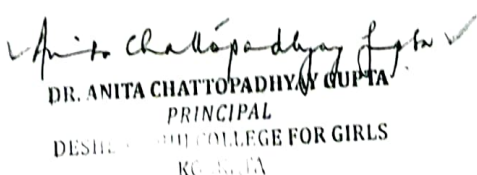 Anita Chattopadhyay Gupta
DR. ANITA CHATTOPADHYAY GUPTA
PRINCIPAL
COLLEGE FOR GIRLS